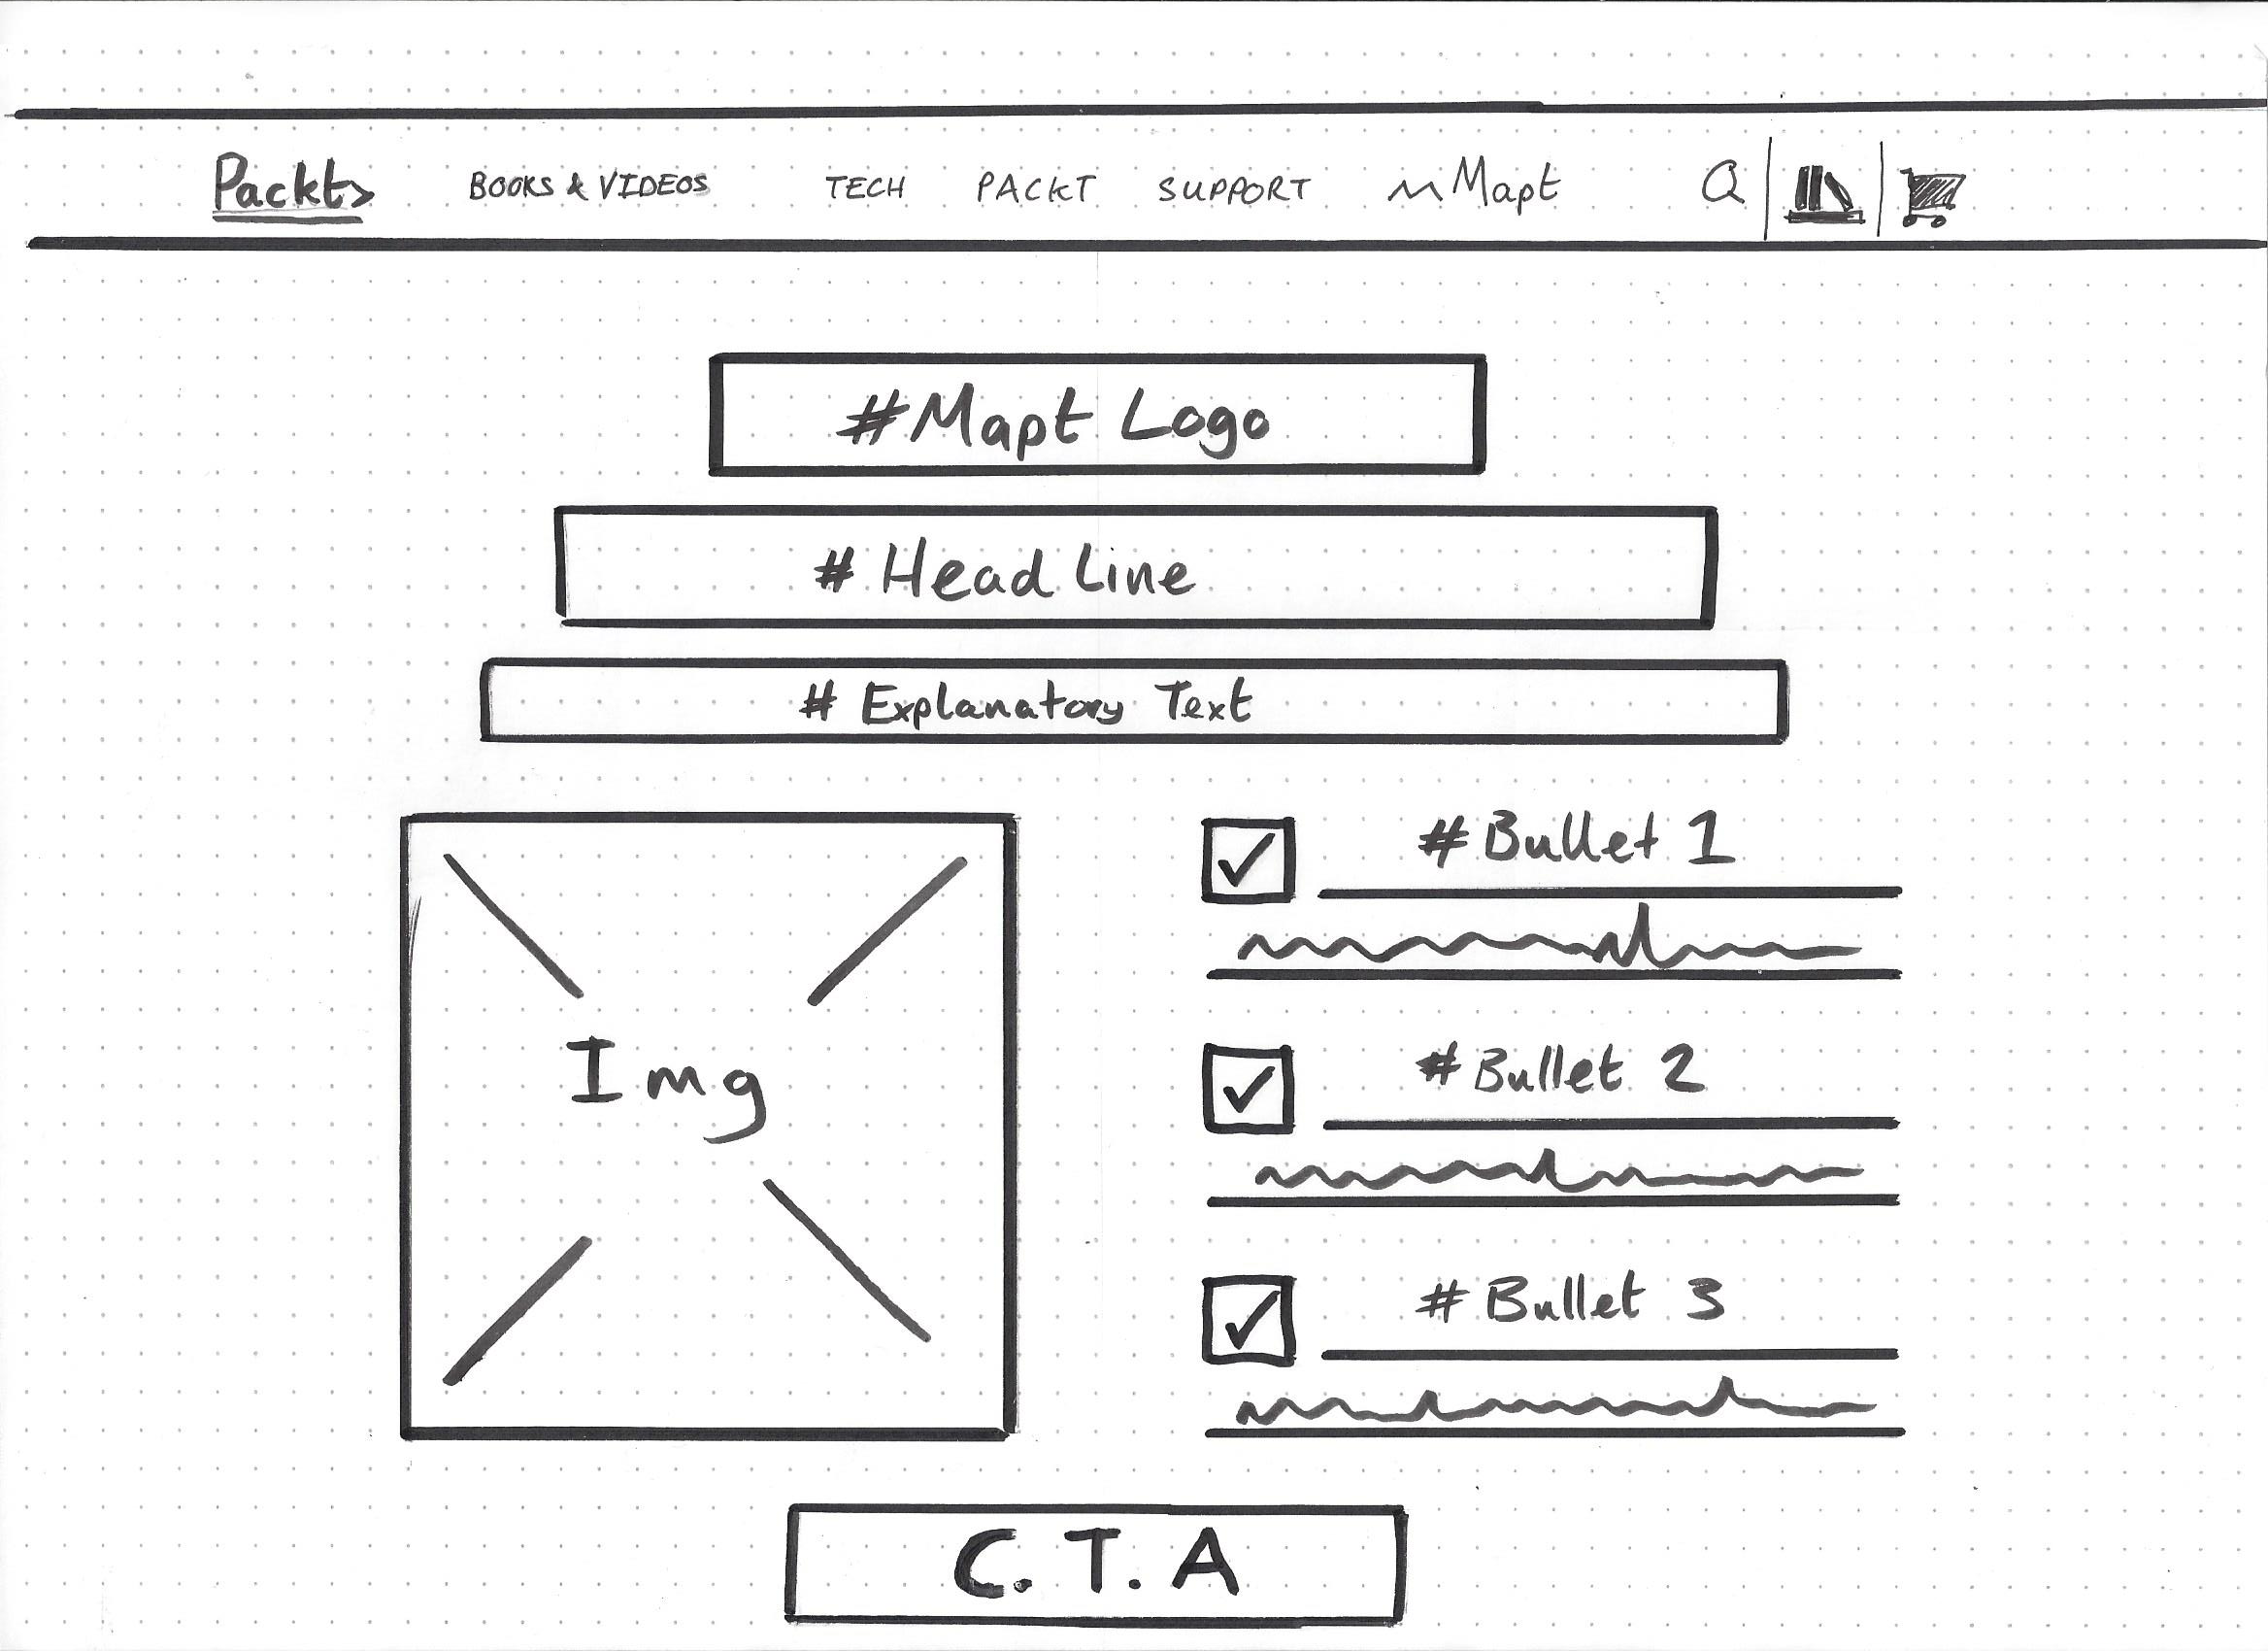 Packt> BOOKS & VIDEOS TECH PACKT SUPPORT Mapt
#Mapt Logo
# Head Line
# Explanatory Text
#Bullet 1
Img
#Bullet 2
# Bullet 3
C.T.A